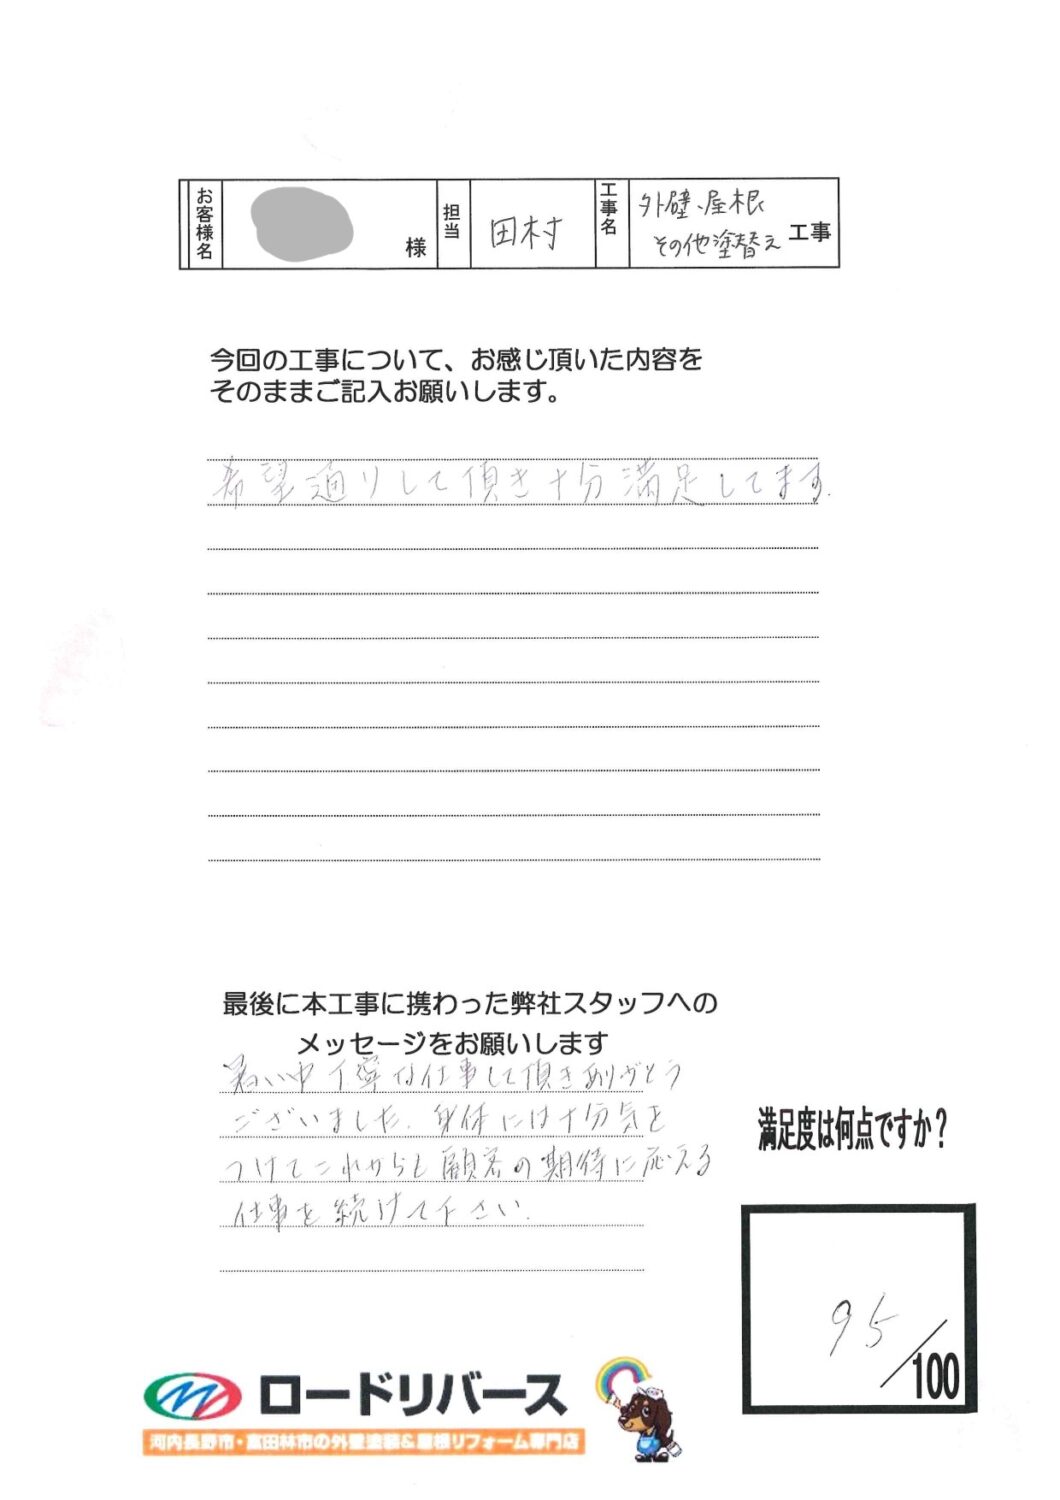 お客様名 様 担当 田村 工事名 外壁、屋根
その他塗替え 工事
今回の工事について、お感じ頂いた内容を
そのままご記入お願いします。
希望通りして頂き十分満足してます。
最後に本工事に携わった弊社スタッフへの
メッセージをお願いします
暑い中丁寧な仕事して頂きありがとう
ございました。身体には十分気を
つけてこれからも顧客の期待に応える
仕事を続けて下さい。
満足度は何点ですか？
95/100
ロードリバース
河内長野市・富田林市の外壁塗装&屋根リフォーム専門店